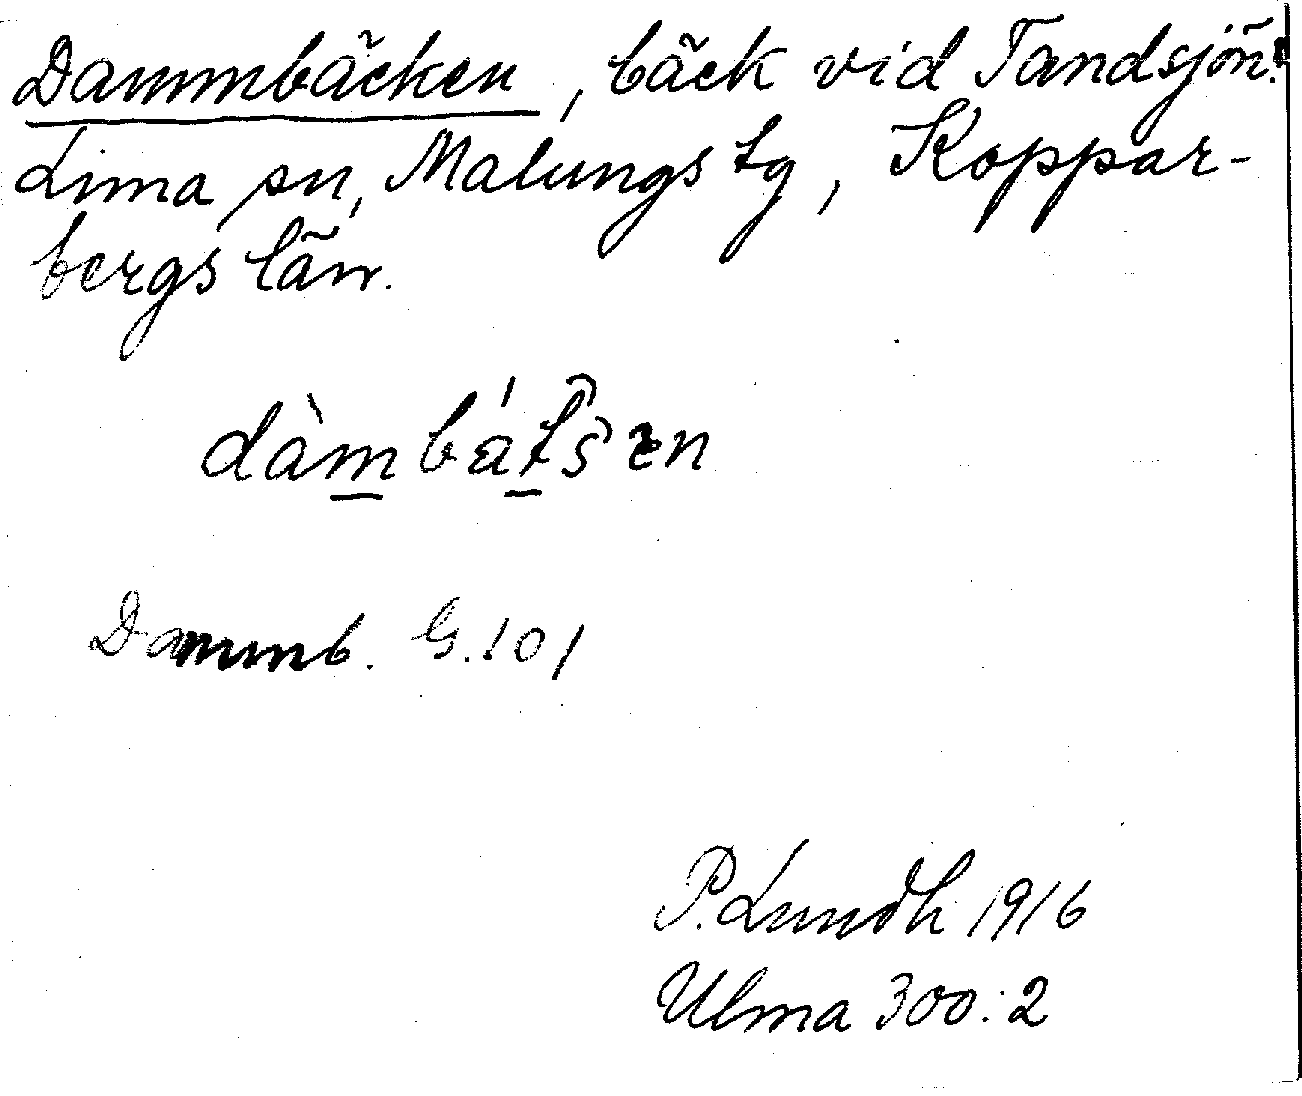 Dammbäcken, bäck vid Tandsjön.
Lima sn, Malungs tg, Koppar-
bergs län.
Dammb. G. 101
P. Lundh 1916
Ulma 300:2